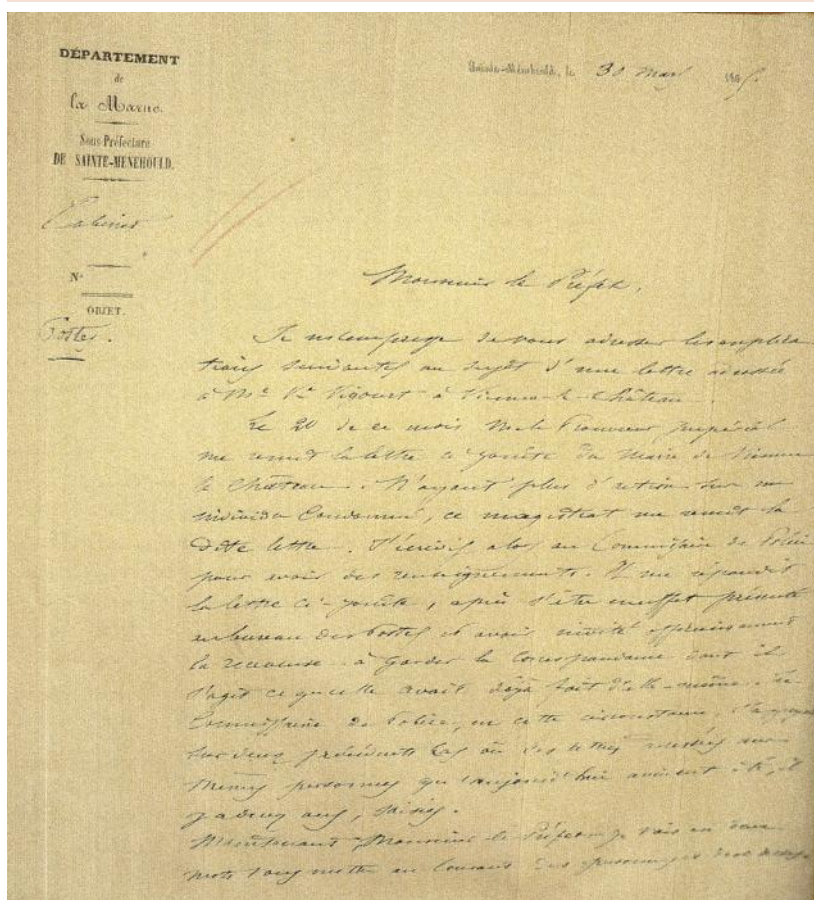 DÉPARTEMENT
de
la Marne.
Sous-Préfecture
DE SAINTE-MENEHOULD.
Cabinet
N°
OBJET.
Postes.
Sainte-Menehould, le 30 Mars 18
Monsieur le Préfet,
Je m'empresse de vous adresser les explica
tions suivantes au sujet d'une lettre adressée
à Mme Ve Vigourt à Vienne-le-Château.
Le 20 de ce mois Mr le Procureur Impérial
me remit la lettre ci-jointe du Maire de Vienne
le Château. N'ayant plus d'action sur un
individu Condamné, ce magistrat me remit la
dite lettre. J'écrivis alors au Commissaire de Police
pour avoir des renseignements. Il me répondit
la lettre ci-jointe, après s'être en effet présenté
au bureau des Postes et avoir invité
la receveuse à garder la Correspondance dont il
s'agit ce qu'elle avait déjà fait d'elle-même. Le
Commissaire de Police, en cette circonstance,
sur deux précédents cas où des lettres adressées aux
mêmes personnes qu'aujourd'hui avaient été, il
y a deux ans, saisies.
Maintenant, Monsieur le Préfet, je vais en deux
mots vous mettre au Courant des personnages